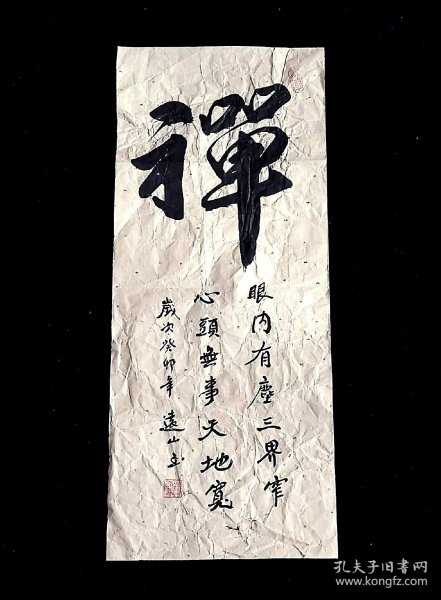 禪
眼内有塵三界窄
心頭無事天地寬
歲次癸卯年 遠山書
孔夫子旧书网
www.kongfz.com